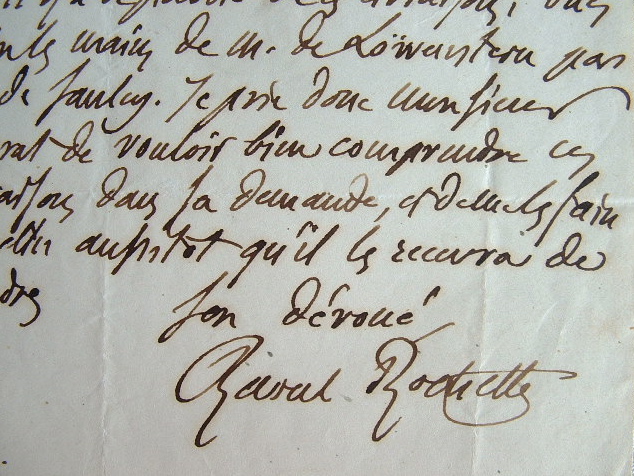 les mains de M. de Löwenstern par
de Saulcy. Je prie donc Monsieur
rat de vouloir bien comprendre ces
dans sa demande, et de me les faire
aussitôt qu'il les recevra de
dres
son dévoué
Raoul Rochette